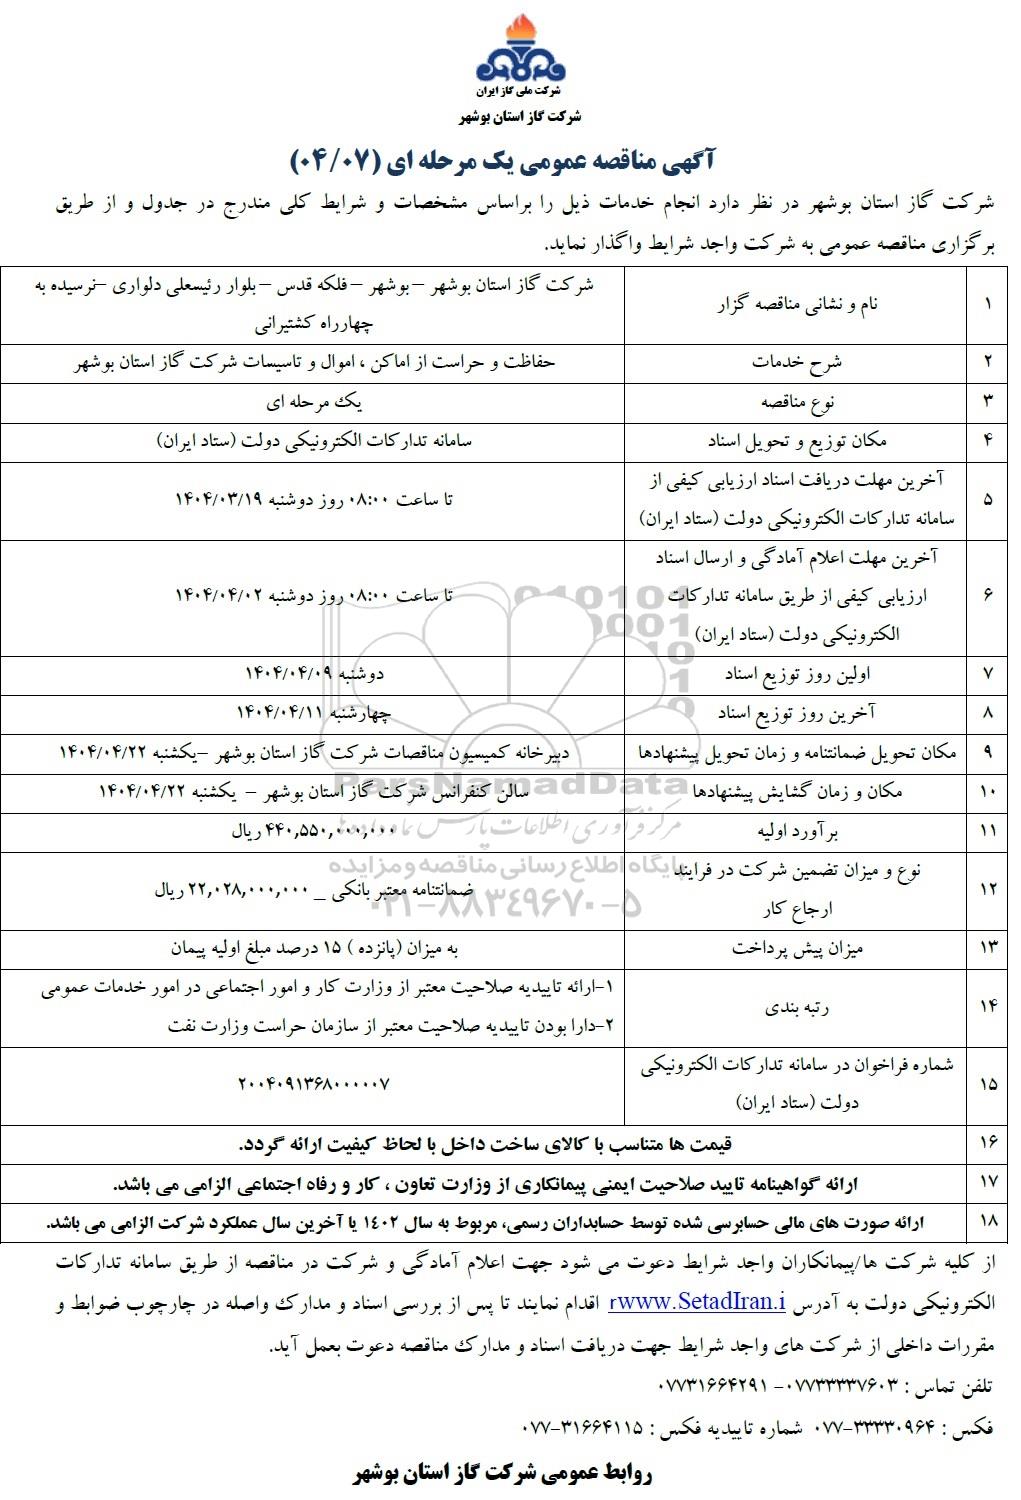 شرکت ملی گاز ایران
شرکت گاز استان بوشهر
آگهی مناقصه عمومی یک مرحله ای (۰۴/۰۷)
شرکت گاز استان بوشهر در نظر دارد انجام خدمات ذیل را براساس مشخصات و شرایط کلی مندرج در جدول و از طریق
برگزاری مناقصه عمومی به شرکت واجد شرایط واگذار نماید.
۱ نام و نشانی مناقصه گزار شرکت گاز استان بوشهر – بوشهر – فلکه قدس – بلوار رئیسعلی دلواری – نرسیده به
چهارراه کشتیرانی
۲ شرح خدمات حفاظت و حراست از اماکن ، اموال و تاسیسات شرکت گاز استان بوشهر
۳ نوع مناقصه یک مرحله ای
۴ مکان توزیع و تحویل اسناد سامانه تدارکات الکترونیکی دولت (ستاد ایران)
۵ آخرین مهلت دریافت اسناد ارزیابی کیفی از
سامانه تدارکات الکترونیکی دولت (ستاد ایران)
تا ساعت ۰۸:۰۰ روز دوشنبه ۱۴۰۴/۰۳/۱۹
۶ آخرین مهلت اعلام آمادگی و ارسال اسناد
ارزیابی کیفی از طریق سامانه تدارکات
الکترونیکی دولت (ستاد ایران)
تا ساعت ۰۸:۰۰ روز دوشنبه ۱۴۰۴/۰۴/۰۲
۷ اولین روز توزیع اسناد دوشنبه ۱۴۰۴/۰۴/۰۹
۸ آخرین روز توزیع اسناد چهارشنبه ۱۴۰۴/۰۴/۱۱
۹ مکان تحویل ضمانتنامه و زمان تحویل پیشنهادها دبیرخانه کمیسیون مناقصات شرکت گاز استان بوشهر – یکشنبه ۱۴۰۴/۰۴/۲۲
۱۰ مکان و زمان گشایش پیشنهادها سالن کنفرانس شرکت گاز استان بوشهر – یکشنبه ۱۴۰۴/۰۴/۲۲
۱۱ برآورد اولیه ۴۴۰,۵۵۰,۰۰۰,۰۰۰ ریال
۱۲ نوع و میزان تضمین شرکت در فرایند
ارجاع کار
ضمانتنامه معتبر بانکی _ ۲۲,۰۲۸,۰۰۰,۰۰۰ ریال
۱۳ میزان پیش پرداخت به میزان (پانزده ) ۱۵ درصد مبلغ اولیه پیمان
۱۴ رتبه بندی ۱-ارائه تاییدیه صلاحیت معتبر از وزارت کار و امور اجتماعی در امور خدمات عمومی
۲-دارا بودن تاییدیه صلاحیت معتبر از سازمان حراست وزارت نفت
۱۵ شماره فراخوان در سامانه تدارکات الکترونیکی
دولت (ستاد ایران)
۲۰۰۴۰۹۱۳۶۸۰۰۰۰۰۷
۱۶ قیمت ها متناسب با کالای ساخت داخل با لحاظ کیفیت ارائه گردد.
۱۷ ارائه گواهینامه تایید صلاحیت ایمنی پیمانکاری از وزارت تعاون ، کار و رفاه اجتماعی الزامی می باشد.
۱۸ ارائه صورت های مالی حسابرسی شده توسط حسابداران رسمی، مربوط به سال ۱۴۰۲ یا آخرین سال عملکرد شرکت الزامی می باشد.
از کلیه شرکت ها/پیمانکاران واجد شرایط دعوت می شود جهت اعلام آمادگی و شرکت در مناقصه از طریق سامانه تدارکات
الکترونیکی دولت به آدرس rwww.SetadIran.i اقدام نمایند تا پس از بررسی اسناد و مدارک واصله در چارچوب ضوابط و
مقررات داخلی از شرکت های واجد شرایط جهت دریافت اسناد و مدارک مناقصه دعوت بعمل آید.
تلفن تماس : ۰۷۷۳۳۳۳۷۶۰۳- ۰۷۷۳۱۶۶۴۲۹۱
فکس : ۳۳۳۳۰۹۶۴-۰۷۷ شماره تاییدیه فکس : ۳۱۶۶۴۱۱۵-۰۷۷
روابط عمومی شرکت گاز استان بوشهر
ParsNamadData
مرکز فرآوری اطلاعات پارس نماد داده ها
پایگاه اطلاع رسانی مناقصه و مزایده
۰۲۱-۸۸۳۴۹۶۷۰-۵